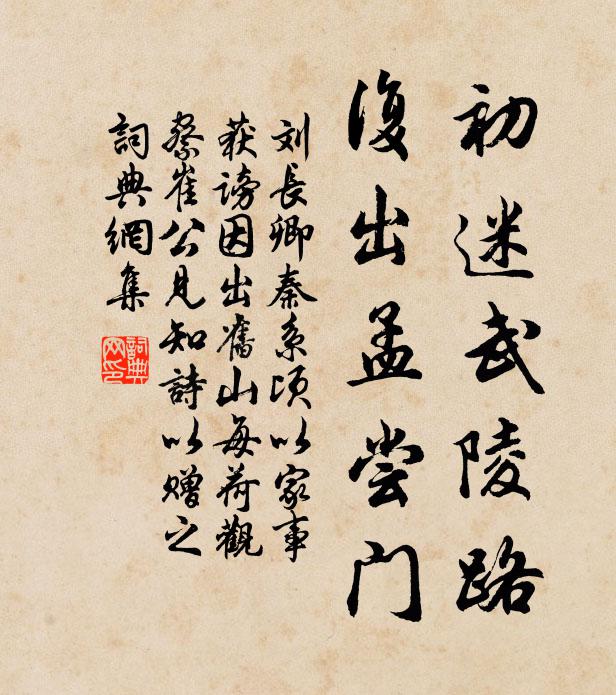 初迷武陵路
復出孟尝门
刘長卿秦系頃以家事
获謗因出舊山每荷觀
察崔公見知詩以赠之
詞典網集
詞典
网印